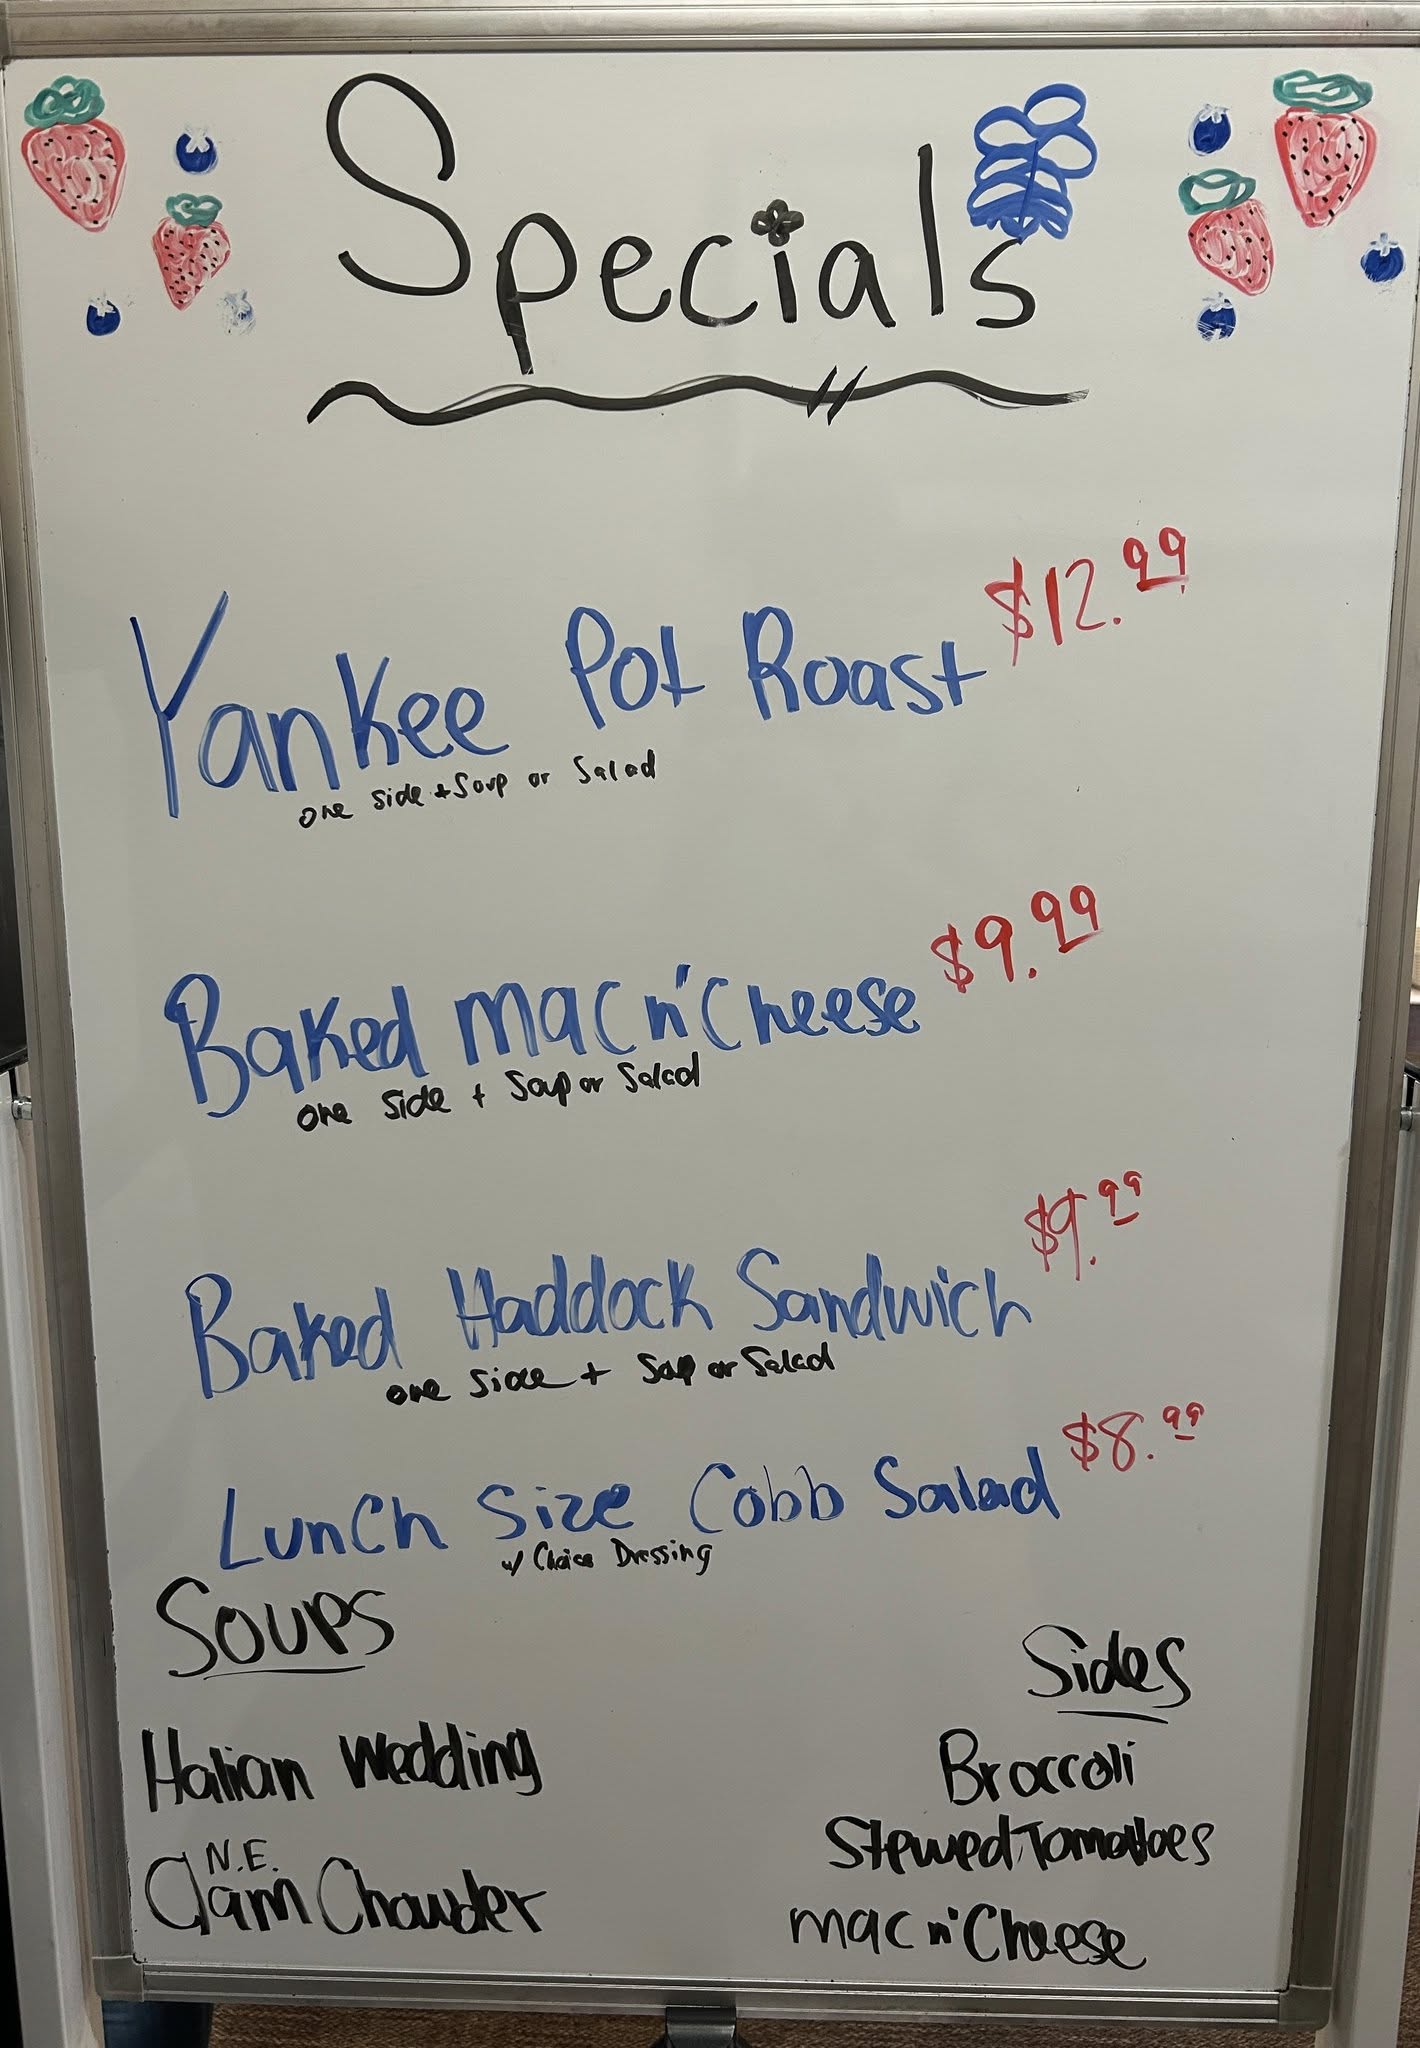 Specials
Yankee Pot Roast $12.99
one side + Soup or Salad
Baked mac n' Cheese $9.99
one side + Soup or Salad
Baked Haddock Sandwich $9.99
one side + Soup or Salad
Lunch Size Cobb Salad $8.99
w/ Choice Dressing
Soups
Italian Wedding
N.E.
Clam Chowder
Sides
Broccoli
Stewed Tomattoes
mac n' Cheese